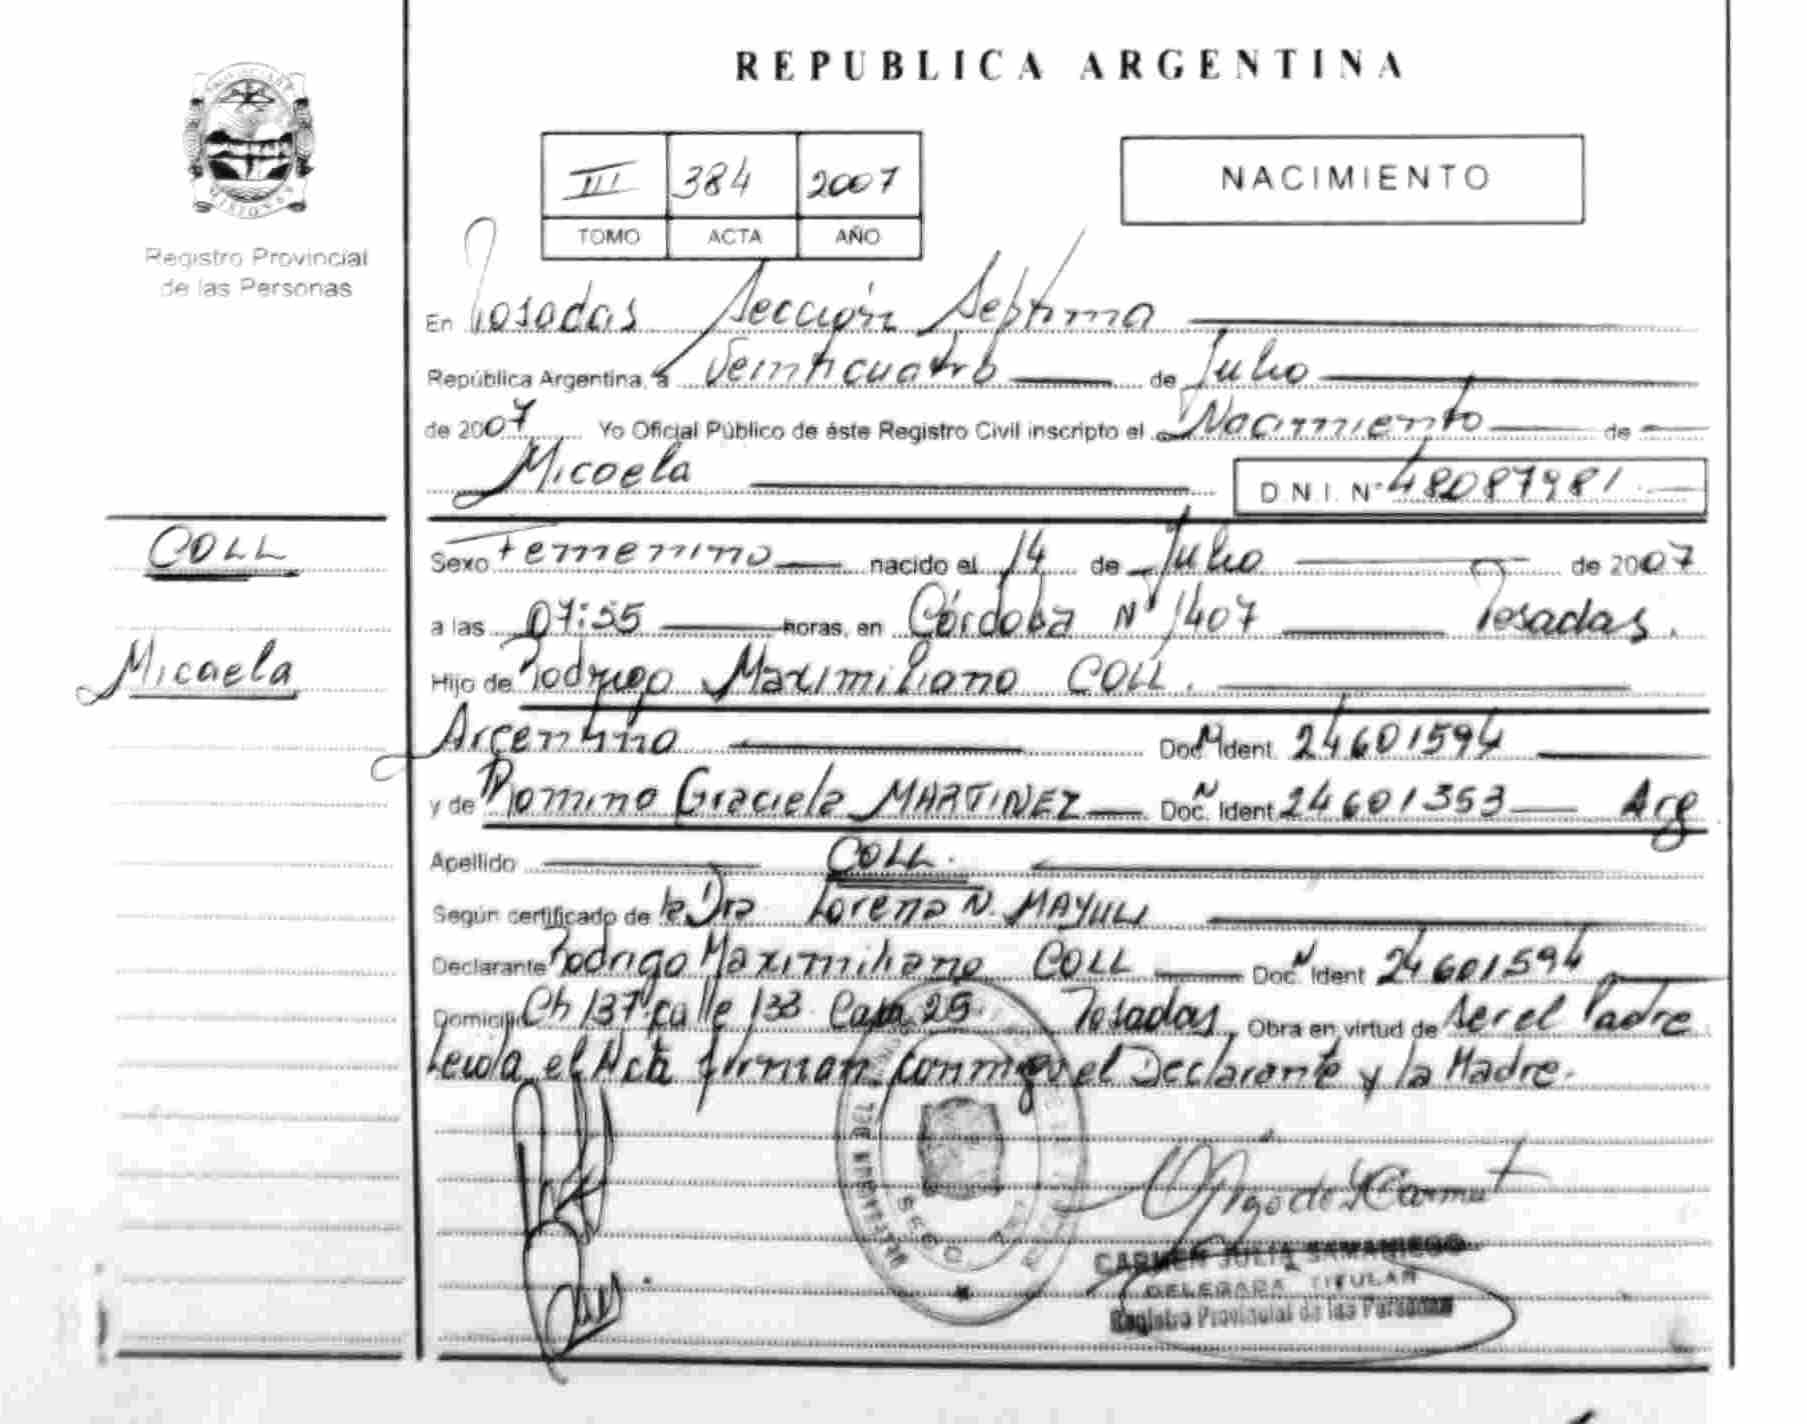 REPUBLICA ARGENTINA
MISIONES
Registro Provincial
de las Personas
III 384 2007
TOMO ACTA AÑO
NACIMIENTO
En Posadas Sección Septima
República Argentina, a Veinticuatro de Julio
de 2007 Yo Oficial Público de éste Registro Civil inscripto el Nacimiento de
Micaela D.N.I. Nº 48087981
COLL
Micaela
Sexo Femenino nacido el 14 de Julio de 2007
a las 07:55 horas, en Córdoba Nº 1407 Posadas.
Hijo de Rodrigo Maximiliano COLL.
Argentino Doc. N Ident. 24601594
y de Romina Graciela MARTINEZ Doc. N Ident 24601353 Arg
Apellido COLL.
Según certificado de la Dra. Lorena N. MAYULI
Declarante Rodrigo Maximiliano COLL Doc. N Ident 24601594
Domicilio Ch 137 calle 133 Casa 25 Posadas, Obra en virtud de ser el Padre
Leida el Acta firman conmigo el Declarante y la Madre.
CARMEN JULIA SAMANIEGO
DELEGADA TITULAR
Registro Provincial de las Personas